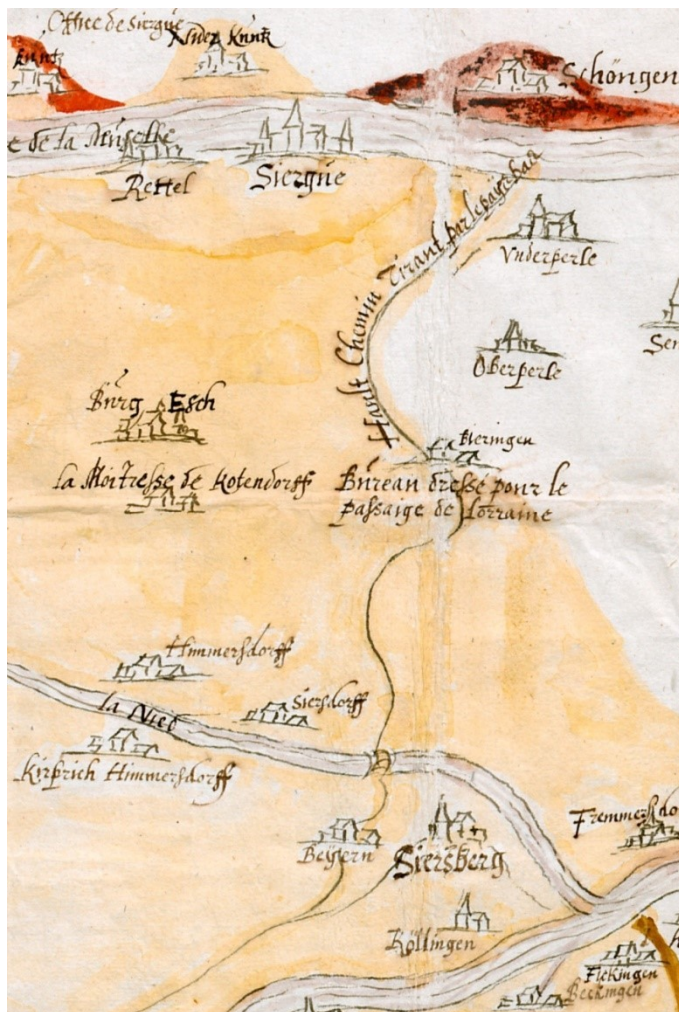 Office de siergue
Nider Kuntz
Kuntz
Schöngen
e de la Müselhe
Rettel
Siergüe
Hault Chemin Tirant par le pays bas
Vnderperle
Oberperle
Sen
Bürg Esch
Meringen
la Moitresse de Rotendorff
Büreau dressé pour le
passaige de Lorraine
Himmersdorff
Siersdorff
la Nied
Kirprich Himmersdorff
Fremmersdo
Beyern
Siersberg
Röllingen
Flekingen
Beckingen